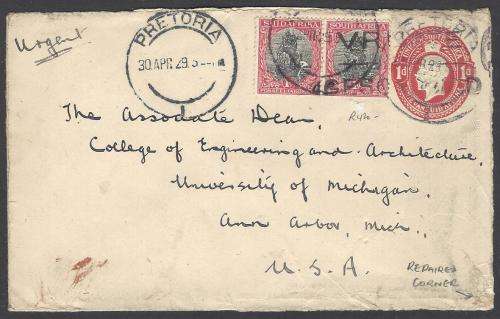 Urgent
PRETORIA
30 APR 29. 5
1
SUIDAFRIKA
SOUTH AFRICA
1d 1d
The Associate Dean,
R40-
College of Engineering and Architecture,
University of Michigan,
Ann Arbor, Mich.,
U.S.A.
REPAIRED
CORNER